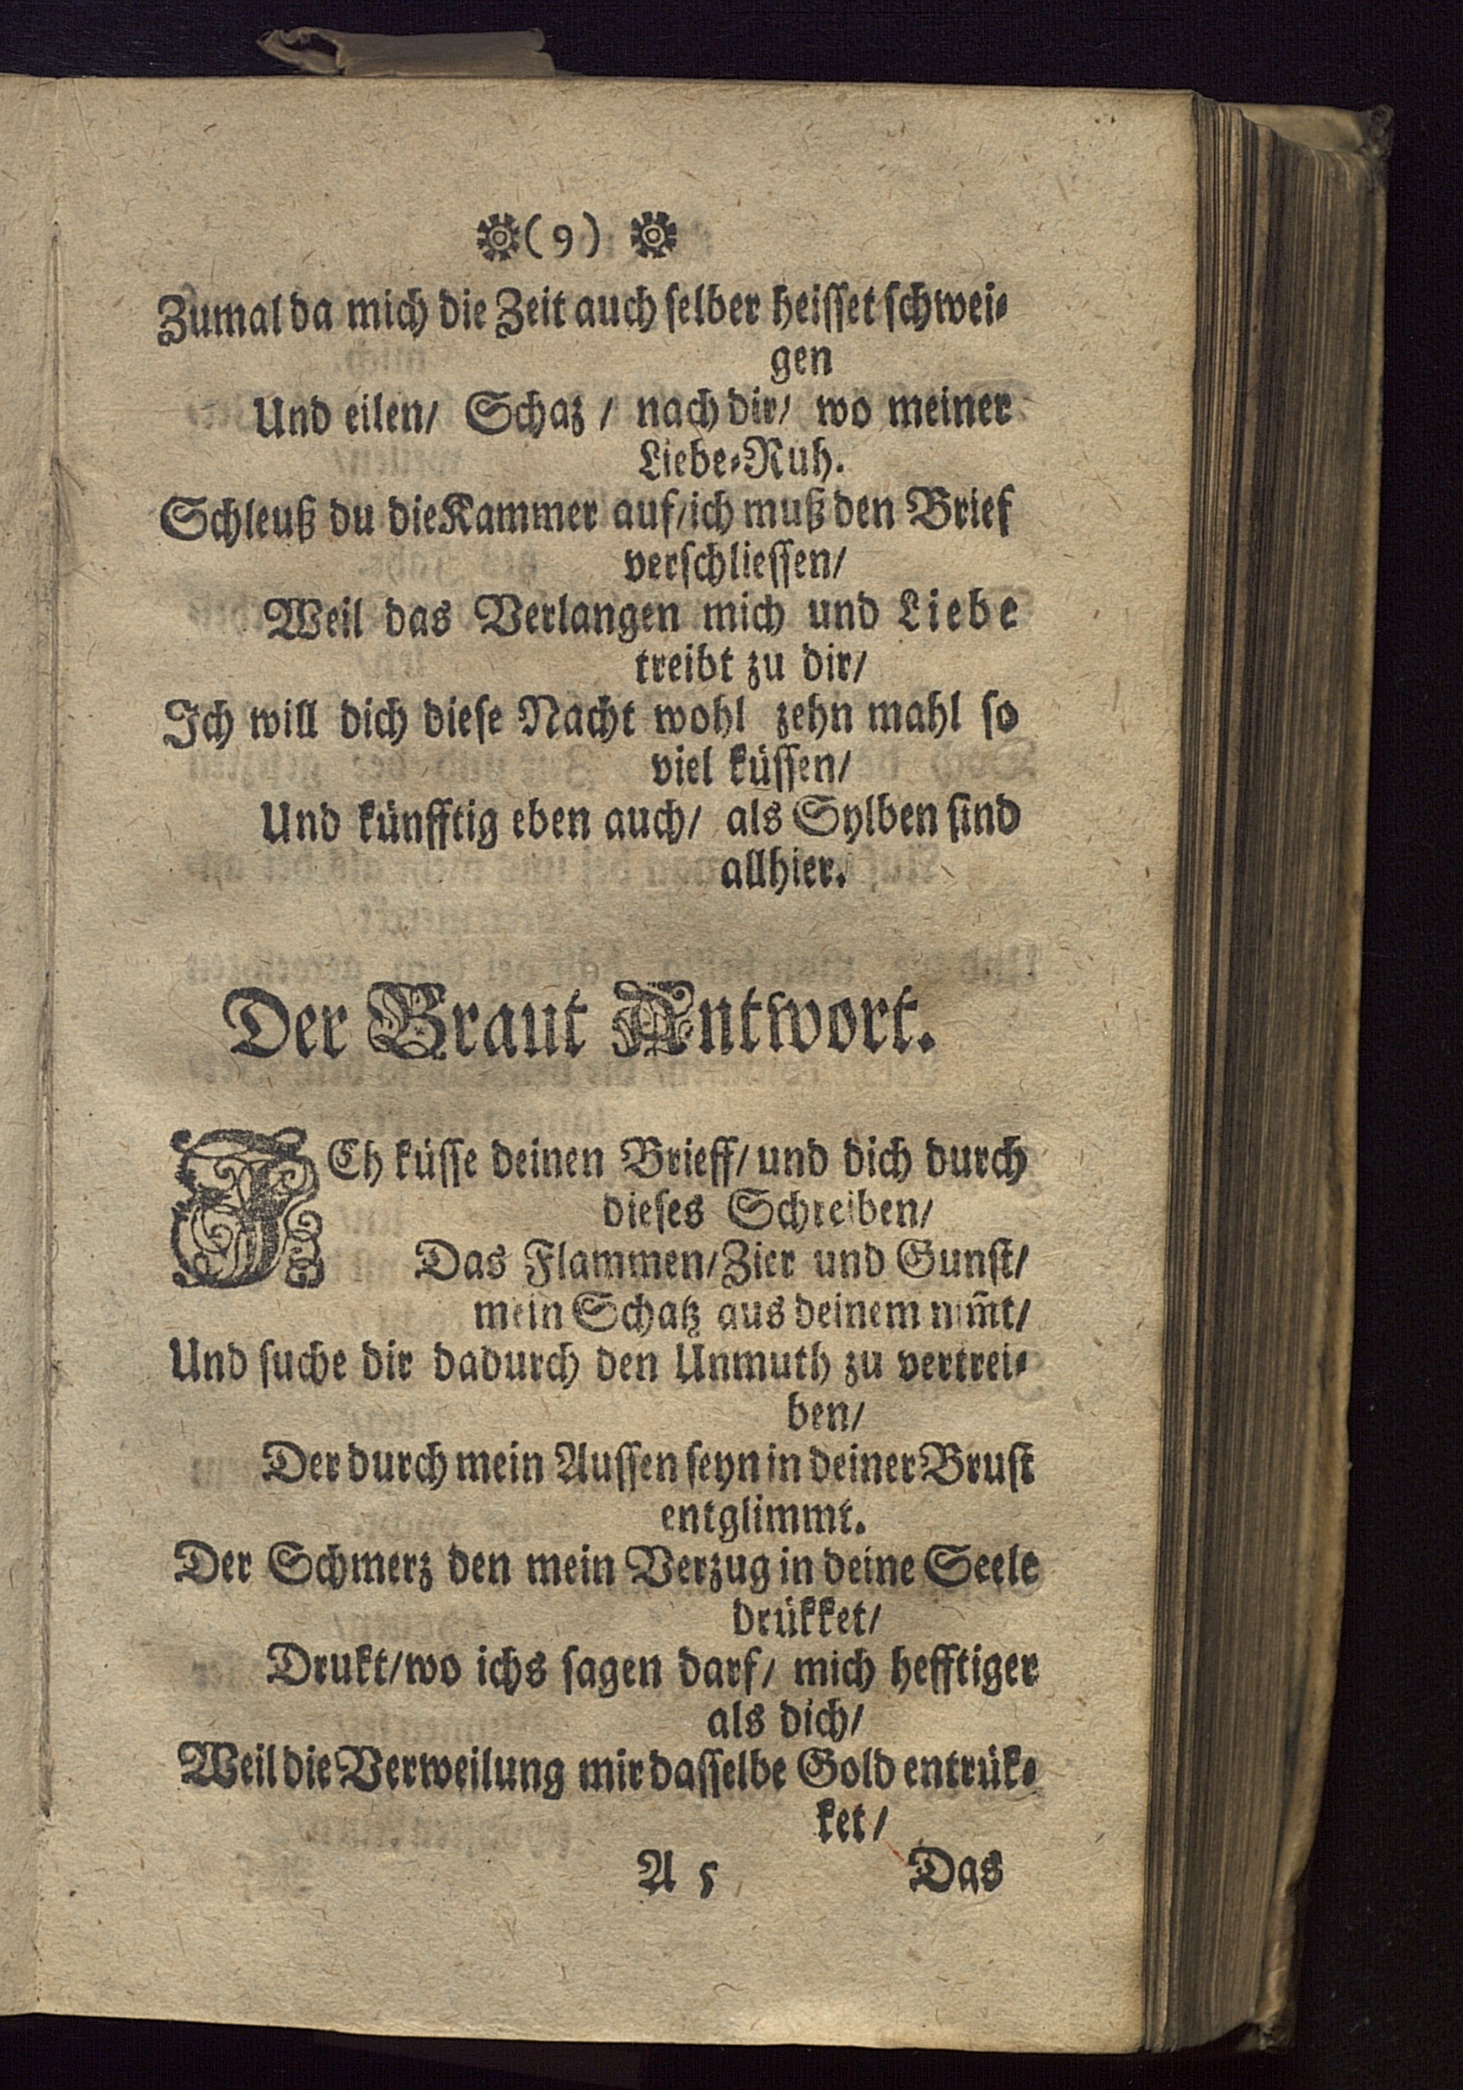 (9)
Zumal da mich die Zeit auch ſelber heiſſet ſchwei⸗
gen
Und eilen/ Schaz / nach dir/ wo meiner
Liebe⸗Ruh.
Schleuß du die Kammer auf/ich muß den Brief
verſchlieſſen/
Weil das Verlangen mich und Liebe
treibt zu dir/
Ich will dich dieſe Nacht wohl zehn mahl ſo
viel küſſen/
Und künfftig eben auch/ als Sylben ſind
allhier.
Der Braut Antwort.
ICh küſſe deinen Brieff/ und dich durch
dieſes Schreiben/
Das Flammen/Zier und Gunſt/
mein Schatz aus deinem nim̃t/
Und ſuche dir dadurch den Unmuth zu vertrei⸗
ben/
Der durch mein Auſſen ſeyn in deiner Bruſt
entglimmt.
Der Schmerz den mein Verzug in deine Seele
drükket/
Drukt/wo ichs ſagen darf/ mich hefftiger
als dich/
Weil die Verweilung mir daſſelbe Gold entrük⸗
ket/
A 5 Das